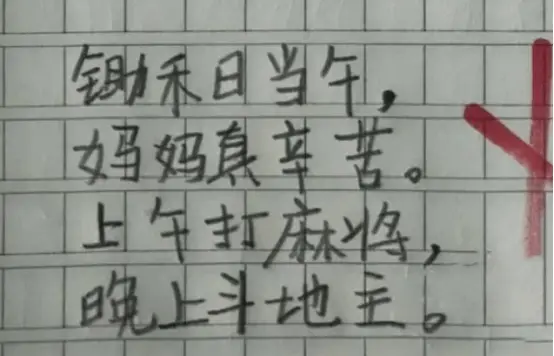 锄禾日当午,
妈妈真辛苦。
上午打麻将,
晚上斗地主。